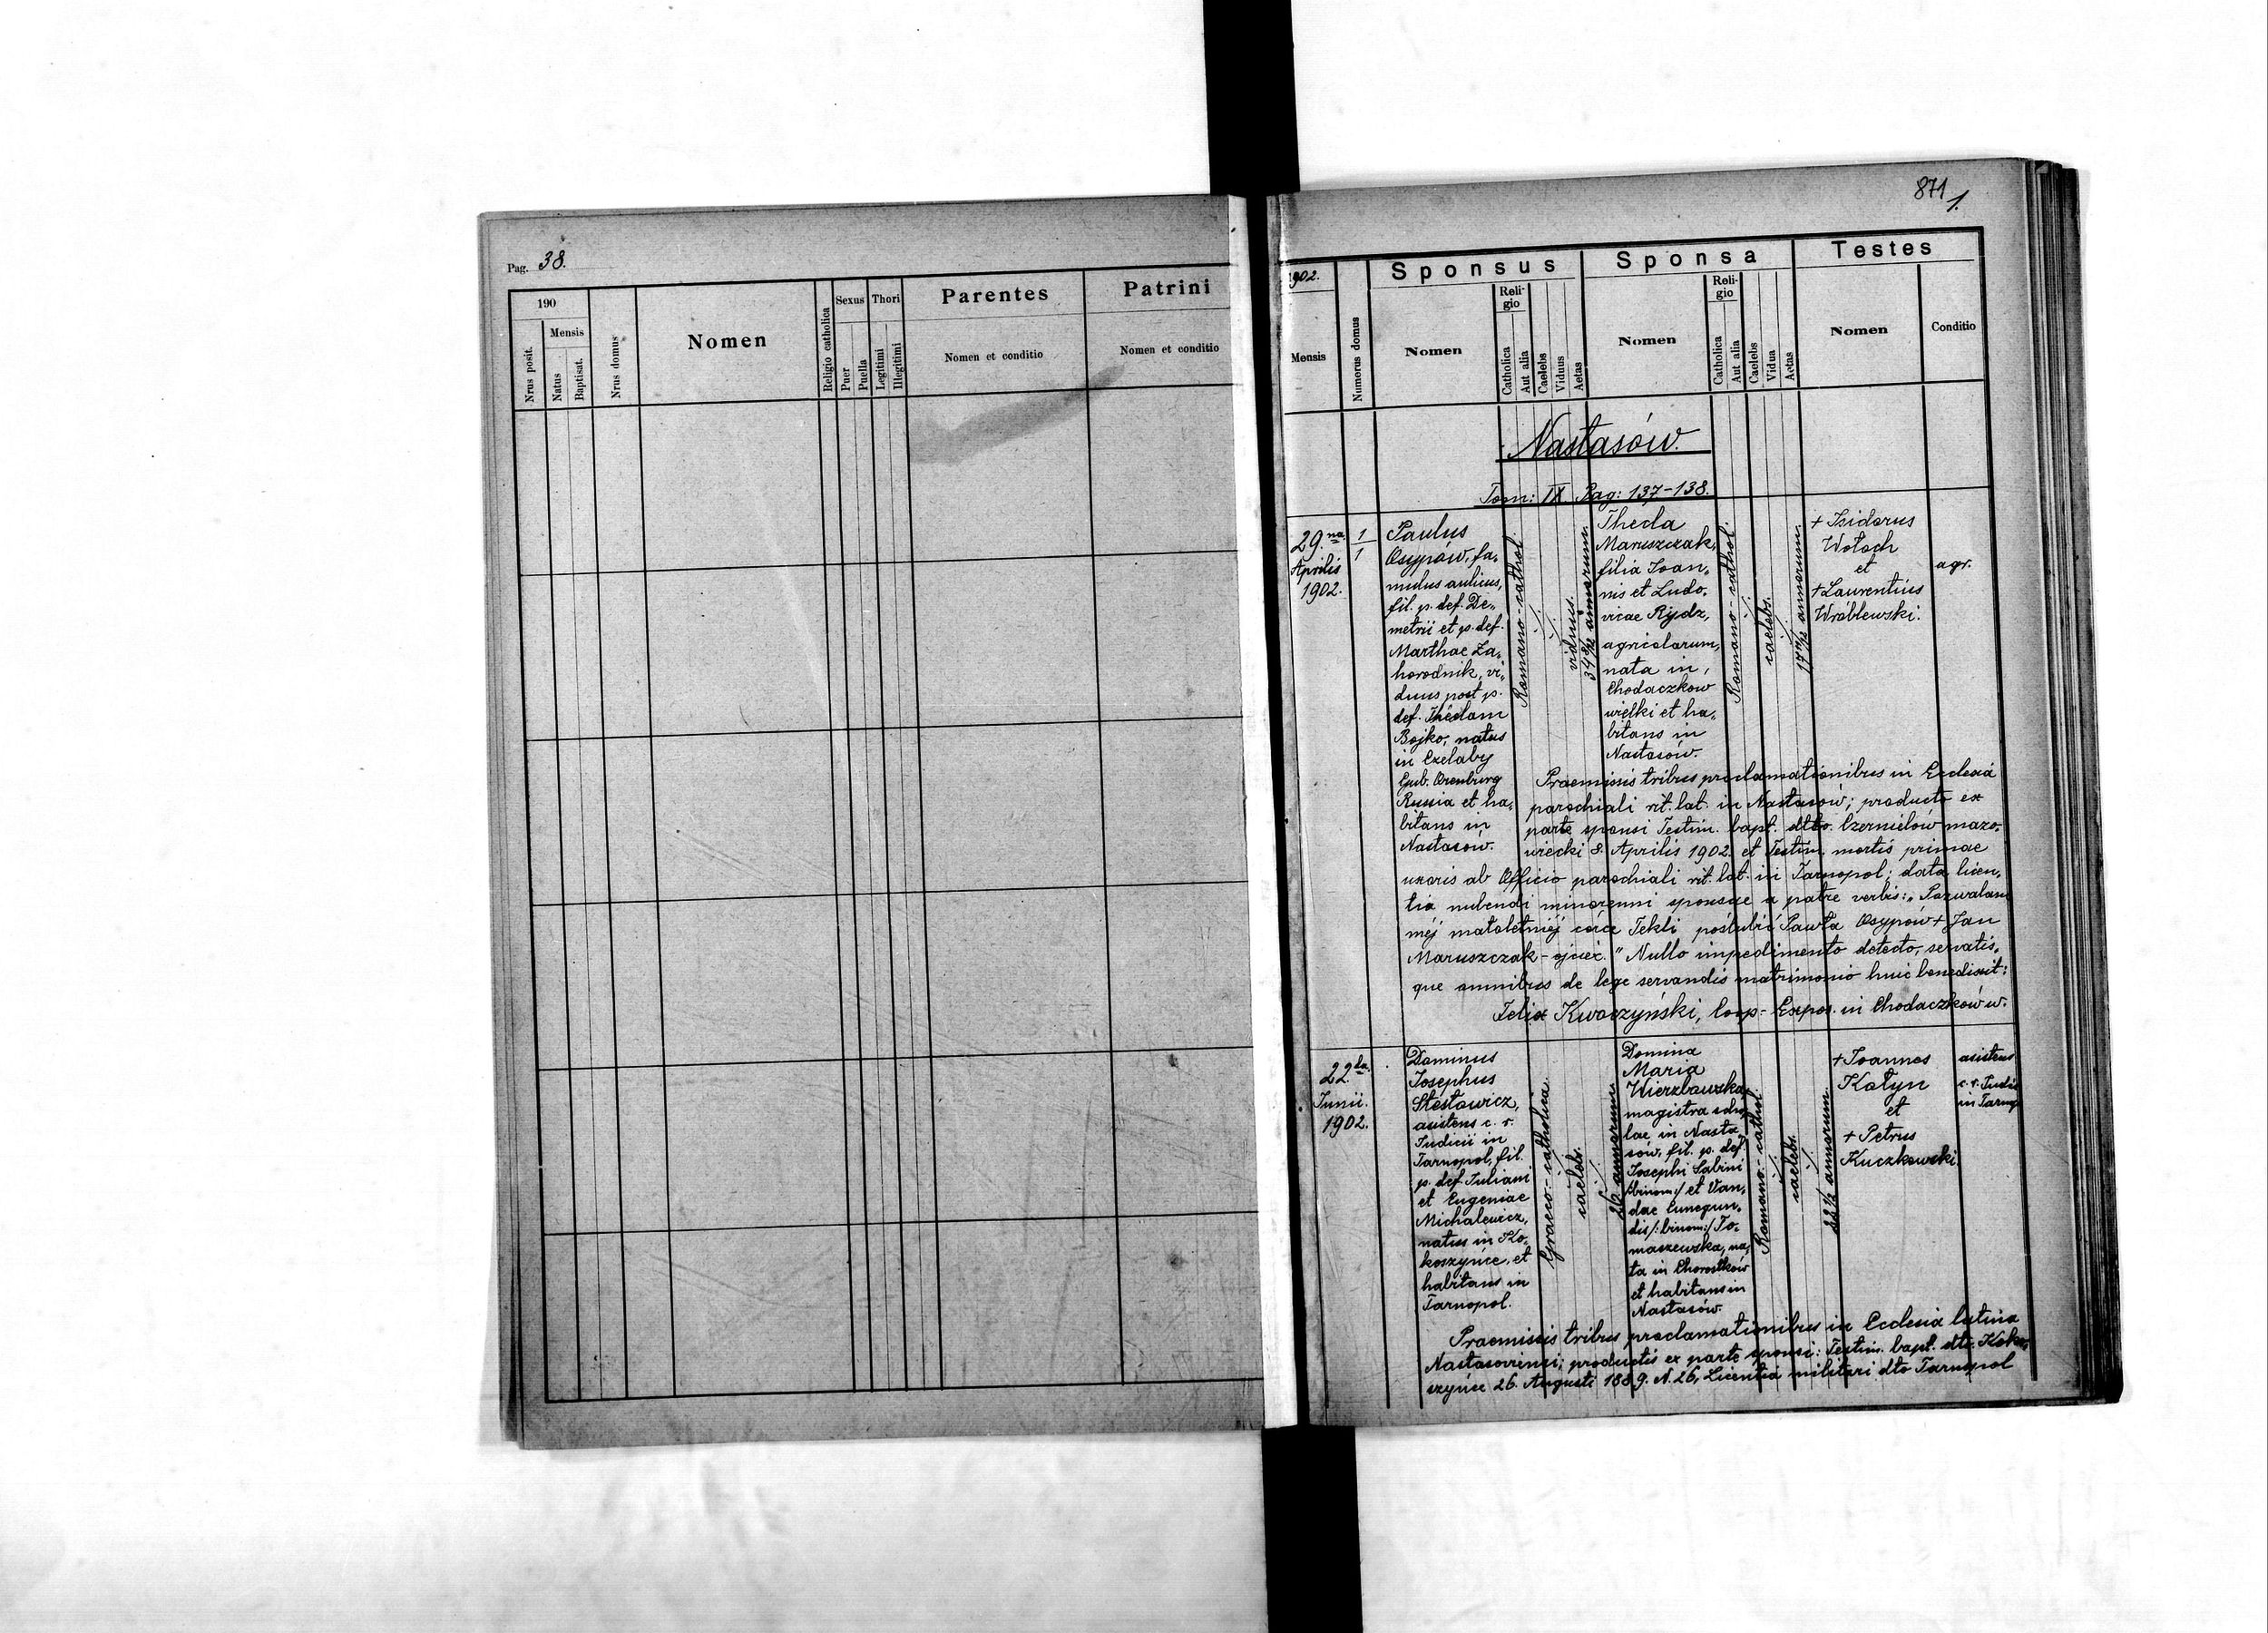 Pag. 38.
190
Nrus posit.
Mensis
Natus
Baptisat.
Nrus domus
Nomen
Religio catholica
Sexus
Puer
Puella
Thori
Legitimi
Illegitimi
Parentes
Nomen et conditio
Patrini
Nomen et conditio
871
1.
1902.
Mensis
Numerus domus
Sponsus
Nomen
Reli-
gio
Catholica
Aut alia
Caelebs
Viduus
Aetas
Sponsa
Nomen
Reli-
gio
Catholica
Aut alia
Caelebs
Vidua
Aetas
Testes
Nomen
Conditio
Nastasów.
Tom: IX Pag: 137-138.
29.na
Aprilis
1902.
1
1
Paulus
Osypów, fa„
mulus aulicus,
fil. p. def. De„
metrii et p. def.
Marthae Za„
horodnik, vi„
duus post p.
def. Theclam
Bojko, natus
in Czelaby
Gub. Orenburg
Russia et ha„
bitans in
Nastasów.
Romano-cathol.
viduus.
34 8/12 annorum
Thecla
Maruszczak,
filia Ioan„
nis et Ludo„
vicae Rydz,
agricolarum,
nata in
Chodaczkow
wielki et ha„
bitans in
Nastasów.
Romano-cathol.
caelebs.
annorum
+ Isidorus
Wołoch
et
+ Laurentius
Wróblewski.
agr.
Praemissis tribus proclamationibus in Ecclesia
parochiali rit. lat. in Nastasów; producto ex
parte sponsi Testim. bapt. dtto. Czernielów mazo„
wiecki 8. Aprilis 1902. et Testim. mortis primae
uxoris ab Officio parochiali rit. lat. in Tarnopol; data licen„
tia nubendi minorenni sponsae a patre verbis: „Pozwalam
méj małoletniéj córce Tekli poślubić Pawła Osypów + Jan
Maruszczak - ojciec." Nullo impedimento detecto, servatis„
que omnibus de lege servandis matrimonio huic benedixit:
Felix Kwoczyński, Coop- Expos. in Chodaczków w.
22.da
Iunii.
1902.
Dominus
Iosephus
Stestowicz,
asistens c. r.
Iudicii in
Tarnopol, fil.
p. def. Iuliani
et Eugeniae
Michalewicz,
natus in Ko„
koszyńce, et
habitans in
Tarnopol.
Graeco-catholica.
caelebs.
26 annorum
Domina
Maria
Wierzbowska
magistra scho„
lae in Nasta„
sów, fil. p. def.
Iosephi Sabini
/:binom:/ et Van„
dae Cunegun„
dis /:binom:/ To„
maszewska, na„
ta in Chorostków
et habitans in
Nastasów.
Romano-cathol.
caelebs.
22 1/2 annorum.
+ Ioannes
Kotyn
et
+ Petrus
Kuczkowski.
asistens
c. r. Iudic
in Tarnop
Praemissis tribus proclamationibus in Ecclesia latina
Nastasoviensi; productis ex parte sponsi: Testim. bapt. dto. Koko„
szyńce 26. Augusti 1889. N. 26, Licentia militari dto Tarnopol